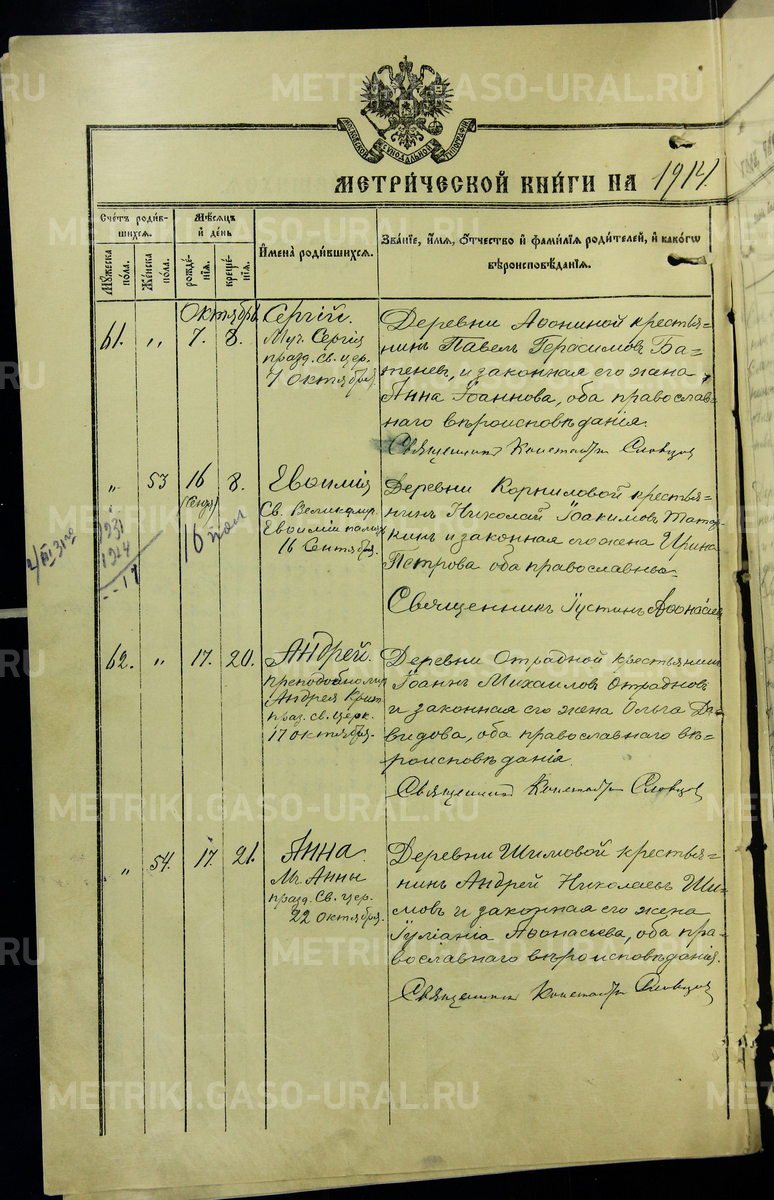 МОСКОВСКОЙ СѴНОДАЛЬНОЙ ТИПОГРАФІИ
МЕТРИ́ЧЕСКОЙ КНИ́ГИ НА 1914.
Сче́тъ роди́вшихся.
Мꙋ́жеска по́ла.
Же́нска по́ла.
Мѣ́сяцъ и҆ де́нь
рожде́нїѧ.
креще́нїѧ.
И҆мена̀ роди́вшихся.
Зва́нїе, и҆́мѧ, ѻ҆́тчество и҆ фами́лїѧ роди́телей, и҆ како́гѡ
вѣроисповѣ́данїѧ.
Октябрь
61. „ 7. 8.
Сергій.
Муч. Сергія
празд. св. цер.
7 октября.
Деревни Аѳониной крестья=
нинъ Павелъ Герасимовъ Ба=
теневъ, и законная его жена
Анна Іоаннова, оба православ=
наго вѣроисповѣданія.
Священникъ Словцов
„ 53 16 8.
16
Евѳимія
Св. Великомуч.
Евѳиміи
16 Сентября.
Деревни Корниловой крестья=
нинъ Николай Іоакимовъ
нинъ и законная его жена Ирина
Петрова оба православные
Священникъ Іустинъ Аѳонасьев
1931
1924
17
62. „ 17. 20.
Андрей.
преподобномуч
Андрея Крит
праз. св. церк.
17 октября.
Деревни Отрадной крестьянинъ
Іоаннъ Михаиловъ Отрадновъ
и законная его жена Ольга Да=
видова, оба православнаго вѣ=
роисповѣданія.
Священникъ Словцов
„ 54. 17. 21.
Анна.
Мч. Анны
празд. Св. цер.
22 октября.
Деревни Шимовой крестья=
нинъ Андрей Николаевъ Ши=
мовъ и законная его жена
Іуліанія Аѳонасьева, оба пра=
вославнаго вѣроисповѣданія.
Священникъ Словцов
METRIKI.GASO-URAL.RU